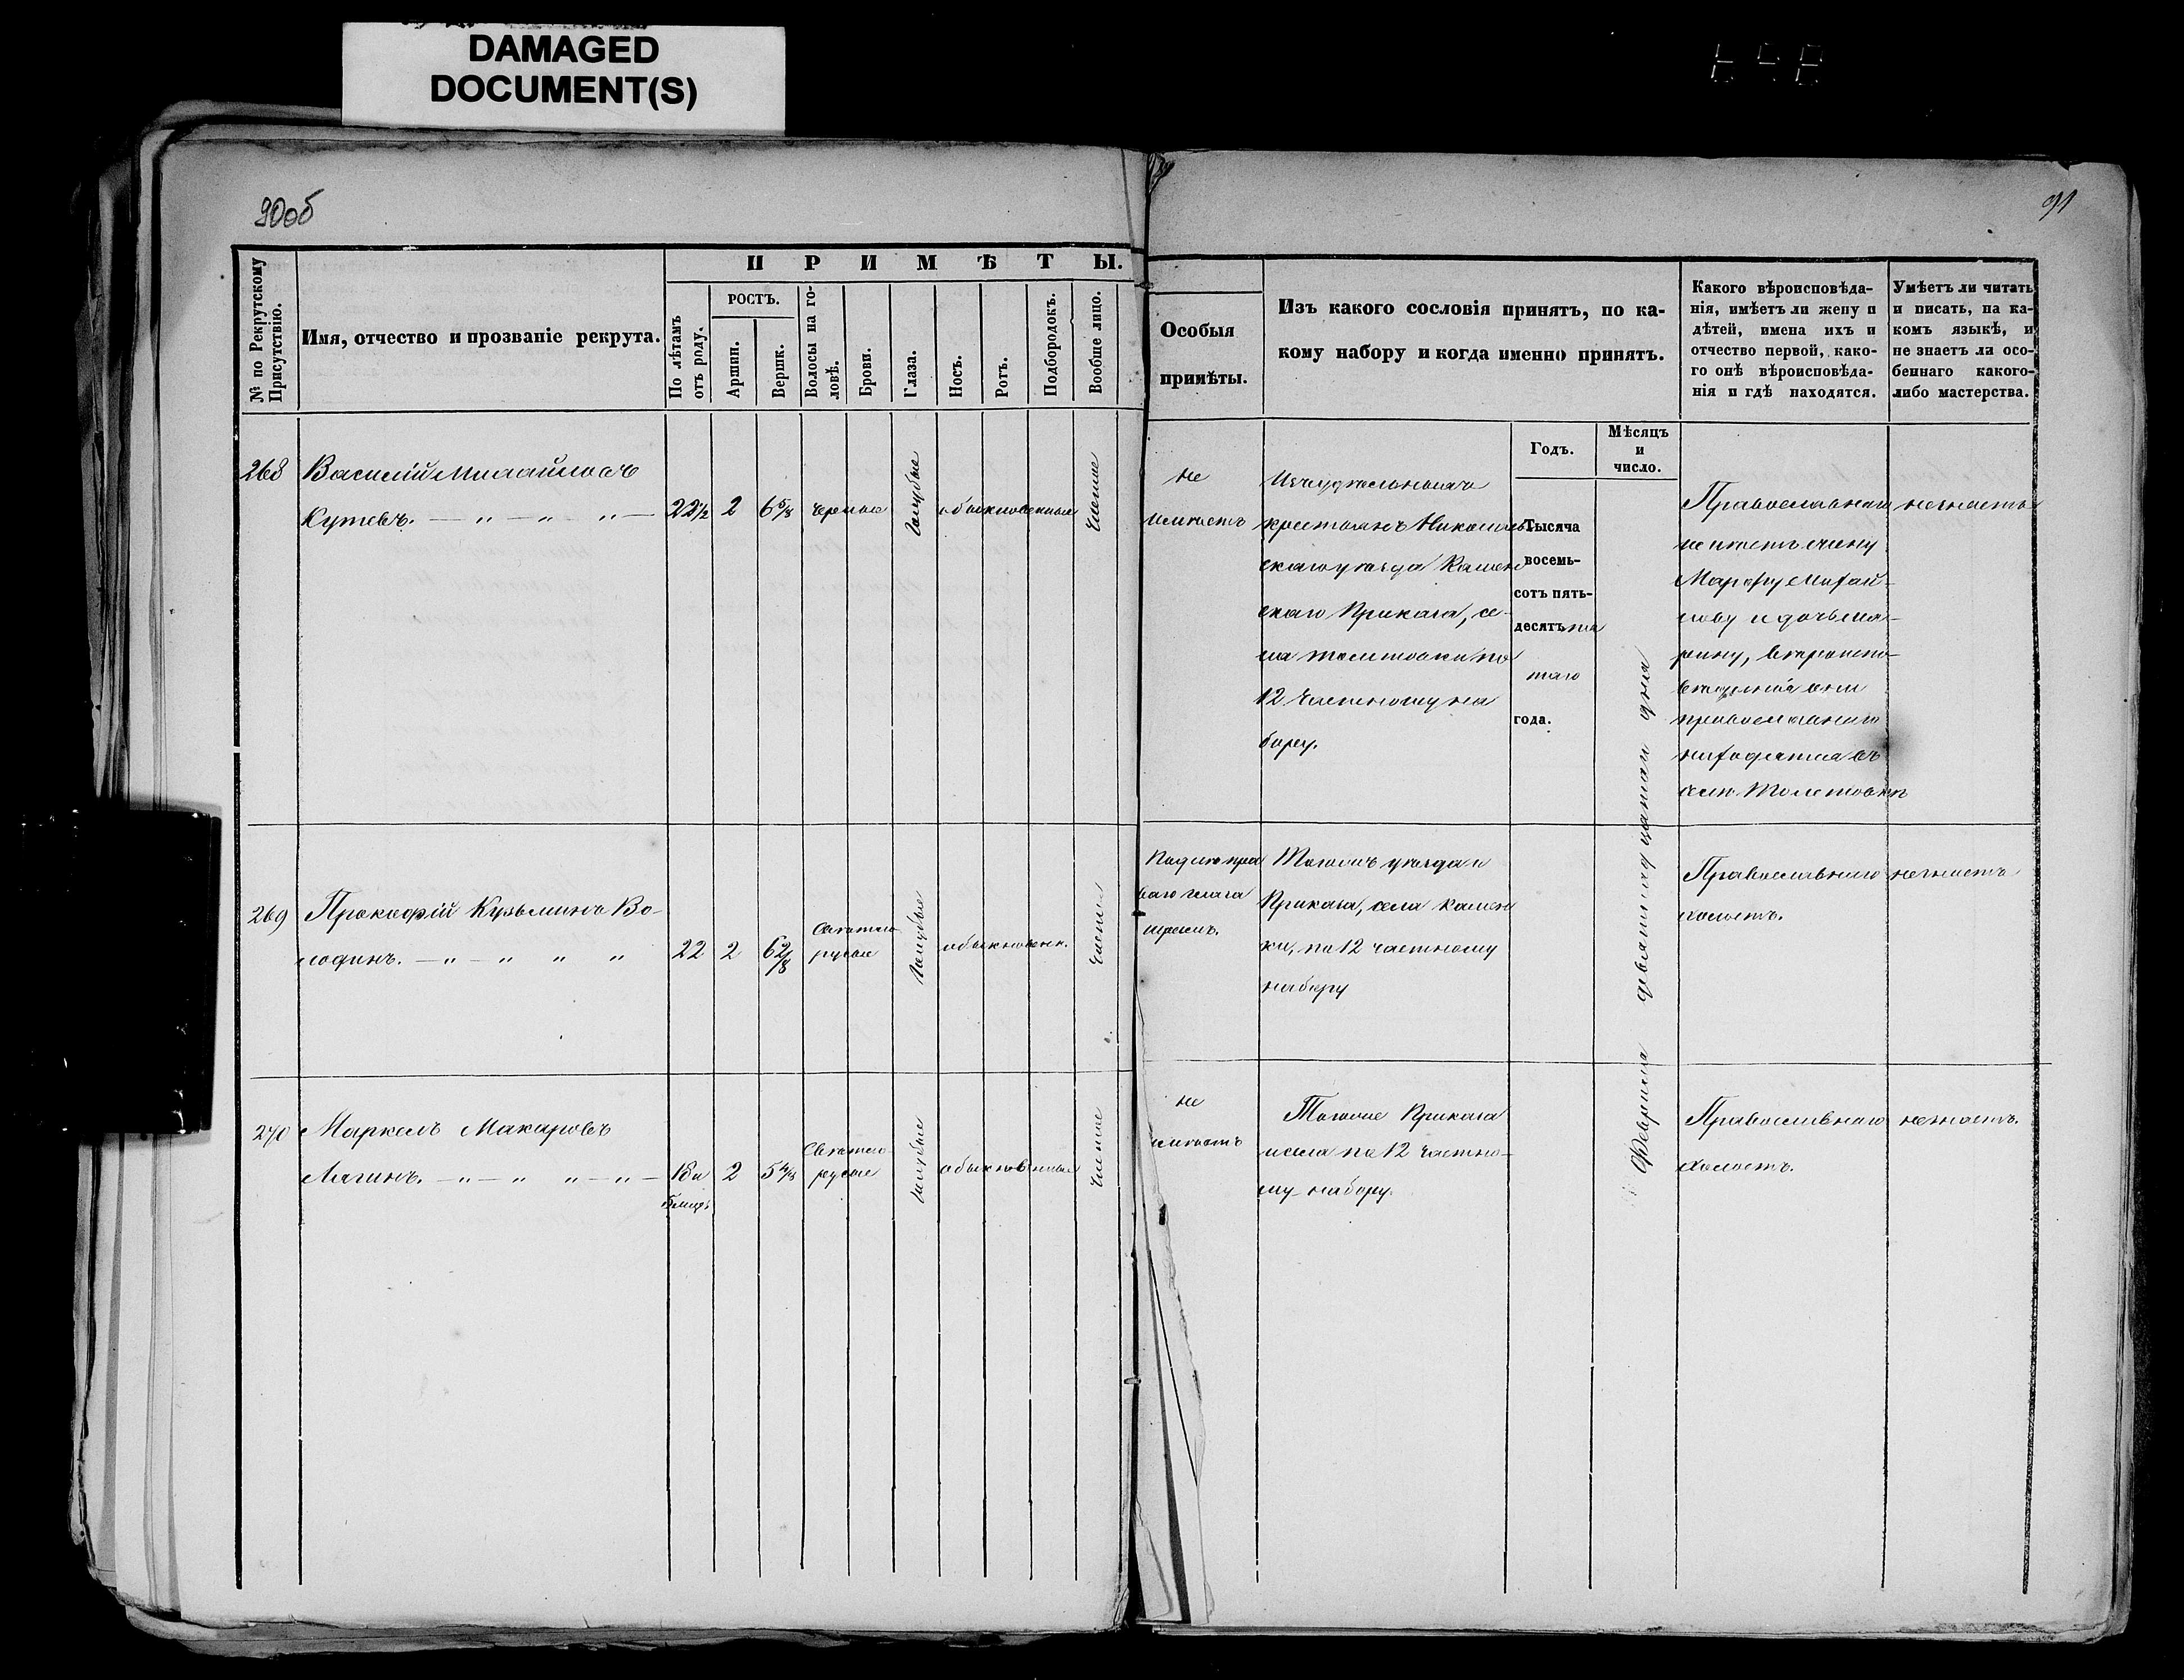 DAMAGED
DOCUMENT(S)
90об
91
№ по Рекрутскому
Присутствію.
Имя, отчество и прозваніе рекрута.
ПРИМѢТЫ.
По лѣтамъ
отъ роду.
РОСТЪ.
Аршин.
Вершк.
Волосы на го-
ловѣ.
Брови.
Глаза.
Носъ.
Ротъ.
Подбородокъ.
Вообще лицо.
Особыя
примѣты.
Изъ какого сословія принятъ, по ка-
кому набору и когда именно принятъ.
Какого вѣроисповѣда-
нія, имѣетъ ли жену и
дѣтей, имена ихъ и
отчество первой, како-
го онѣ вѣроисповѣда-
нія и гдѣ находятся.
Умѣетъ ли читать
и писать, на ка-
комъ языкѣ, и
не знаетъ ли осо-
беннаго какого-
либо мастерства.
Годъ.
Мѣсяцъ
и
число.
268
Василій Михайловъ
Кутевъ. — " — " — " —
22½ 2 6 5/8 черные
голубые
обыкновенные
чистое
не
имѣетъ
крестьянъ Николаев
скаго уѣзда Камен
скаго Приказа, се-
ла Толстовки по
12 частному на
бору.
Тысяча
восемь-
сотъ пять-
десятъ пя
таго
года.
Февраля девятнадцатаго дня
Православнаго
имѣетъ жену
Марфу Михай-
лову и дочь Ма-
рину, вѣроиспо-
вѣданія они
православнаго
находятся въ
селѣ Толстовкѣ
незнаетъ
269
Прокофій Кузьминъ Во-
лодинъ. — " — " " "
22 2 6 2/8
свѣтло
русые
голубые
обыкновен.
чистое
Подлѣ пра
ваго глаза
шрамъ.
Тогожъ уѣзда и
Приказа, села Камен
ки, по 12 частному
набору
Православнаго
холостъ.
незнаетъ
270
Маркелъ Макаровъ
Лягинъ. — " — " " — " —
18 и
2 5 4/8
Свѣтло
русые
голубые
обыкновенные
чистое
не
имѣетъ
Тогоже Приказа
и села по 12 частно-
му набору.
Православнаго
холостъ.
незнаетъ.